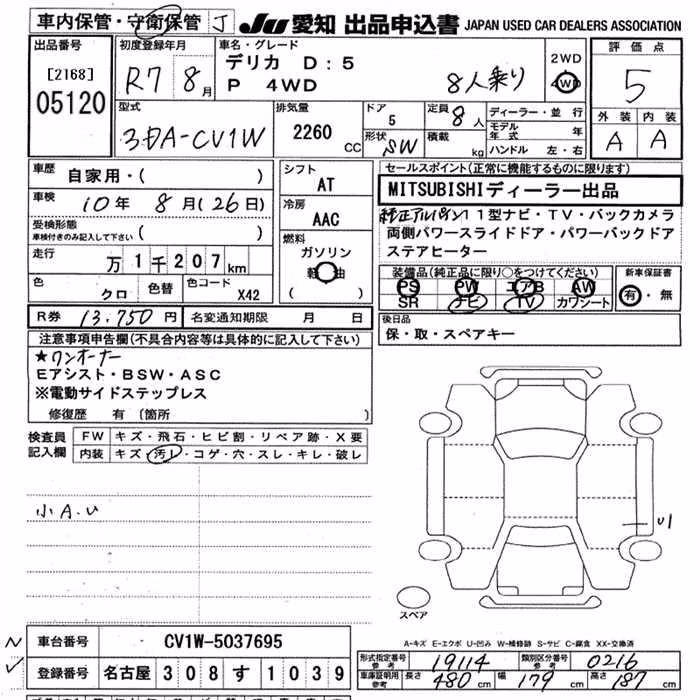 車内保管・守衛保管 J JU 愛知 出品申込書 JAPAN USED CAR DEALERS ASSOCIATION
出品番号 [2168] 05120
初度登録年月 R7 8月
車名・グレード デリカ D:5
P 4WD 8人乗り
2WD 4WD
評価点 5
外装 A 内装 A
型式 3DA-CV1W
排気量 2260 CC
ドア 5
形状 SW
定員 8人
積載 kg
ディーラー・並行
モデル年式 年
ハンドル 左・右
車歴 自家用・( )
車検 10年 8月(26日)
受検形態 車検付きのみ記入して下さい ( )
走行 万 1千207km
色 クロ 色替 色コード X42
シフト AT
冷房 AAC
燃料 ガソリン 軽油 ( )
セールスポイント(正常に機能するものに限ります)
MITSUBISHIディーラー出品
純正アルパイン11型ナビ・TV・バックカメラ
両側パワースライドドア・パワーバックドア
ステアヒーター
装備品(純正品に限り○をつけてください)
PS PW エアB AW
SR ナビ TV カワシート
新車保証書 有・無
R券 13,750円 名変通知期限 月 日
後日品
保・取・スペアキー
注意事項申告欄(不具合内容等は具体的に記入して下さい)
★ワンオーナー
Eアシスト・BSW・ASC
※電動サイドステップレス
修復歴 有(箇所 )
検査員記入欄
FW キズ・飛石・ヒビ割・リペア跡・X要
内装 キズ・汚レ・コゲ・穴・スレ・キレ・破レ
小A.U
U1
スペア
A-キズ E-エクボ U-凹み W-補修跡 S-サビ C-腐食 XX-交換済
車台番号 CV1W-5037695
登録番号 名古屋 308 す 1039
形式指定番号 参考 19114 類別区分番号 参考 0216
車庫証明用 参考 長さ 480cm 幅 179cm 高さ 187cm